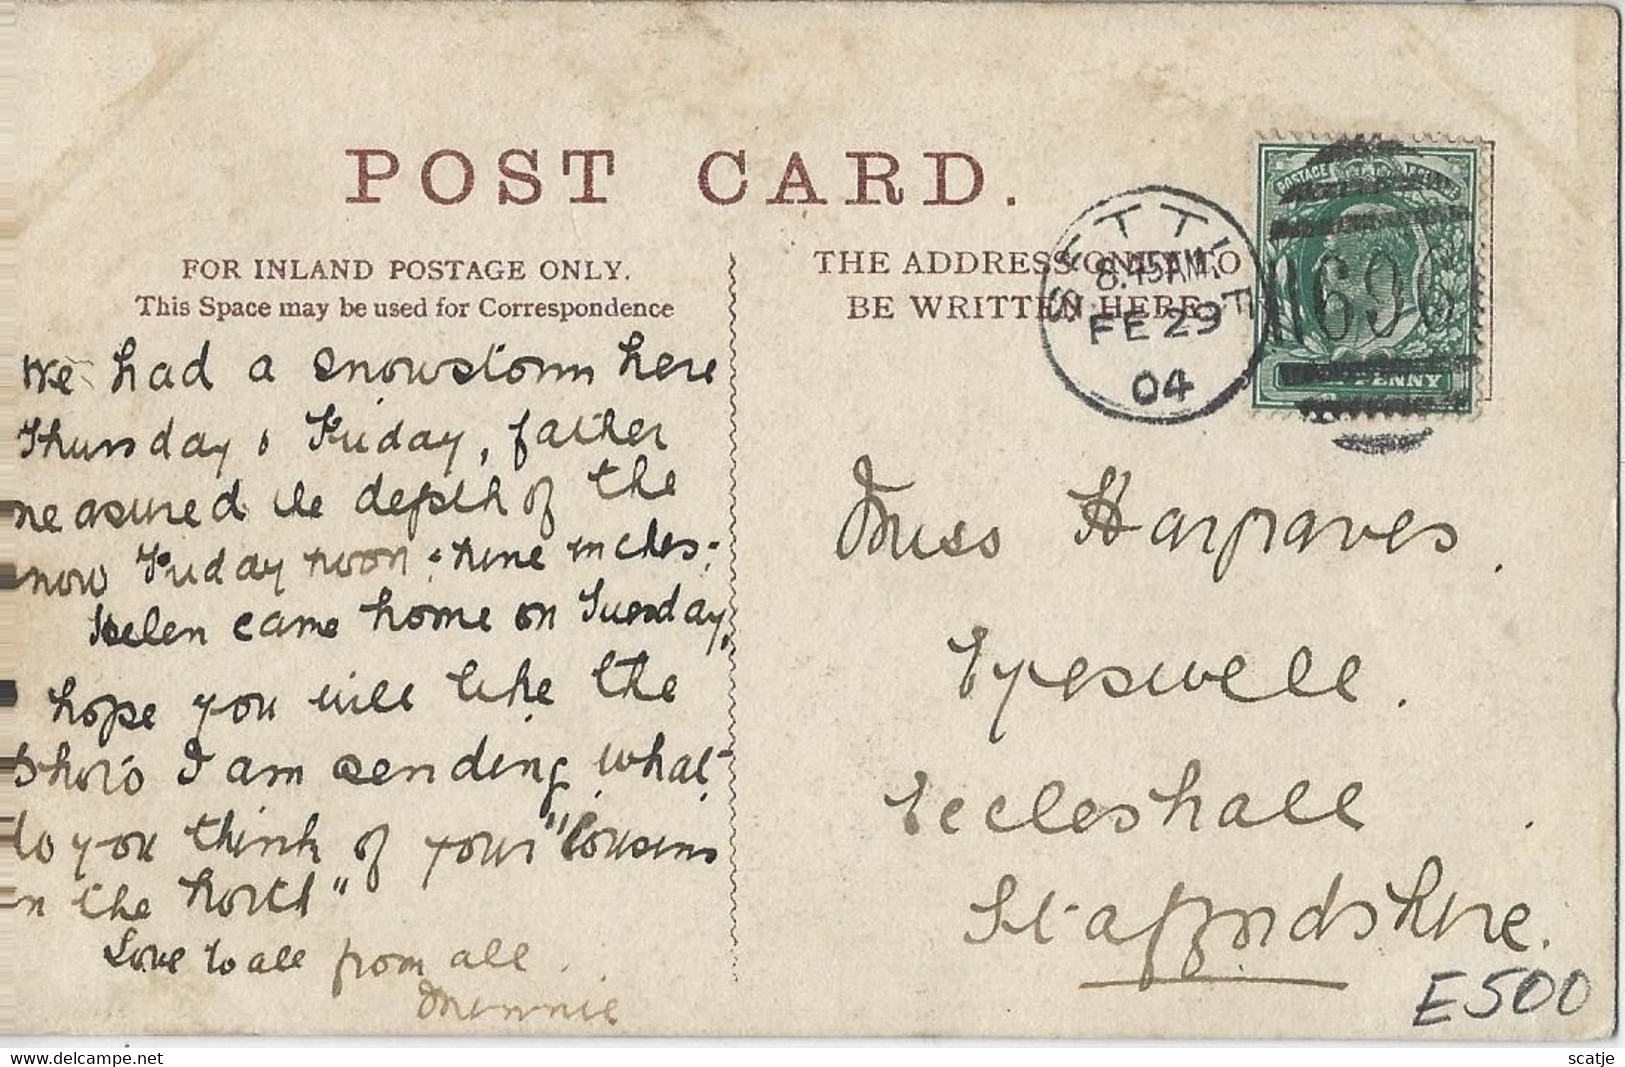 POST CARD.
FOR INLAND POSTAGE ONLY.
This Space may be used for Correspondence
We had a snowstorm here
Thursday & Friday, father
measured the depth of the
snow Friday noon; nine inches.
Helen came home on Tuesday,
hope you will like the
Photo I am sending, what
do you think of your "Cousins
in the North"
Love to all from all.
Minnie
THE ADDRESS ONLY TO
BE WRITTEN HERE.
SETTLE
8.45AM
FE 29
04
696
POSTAGE
PENNY
Miss Hargraves.
Eccleshall
Staffordshire.
E500
delcampe.net
scatje